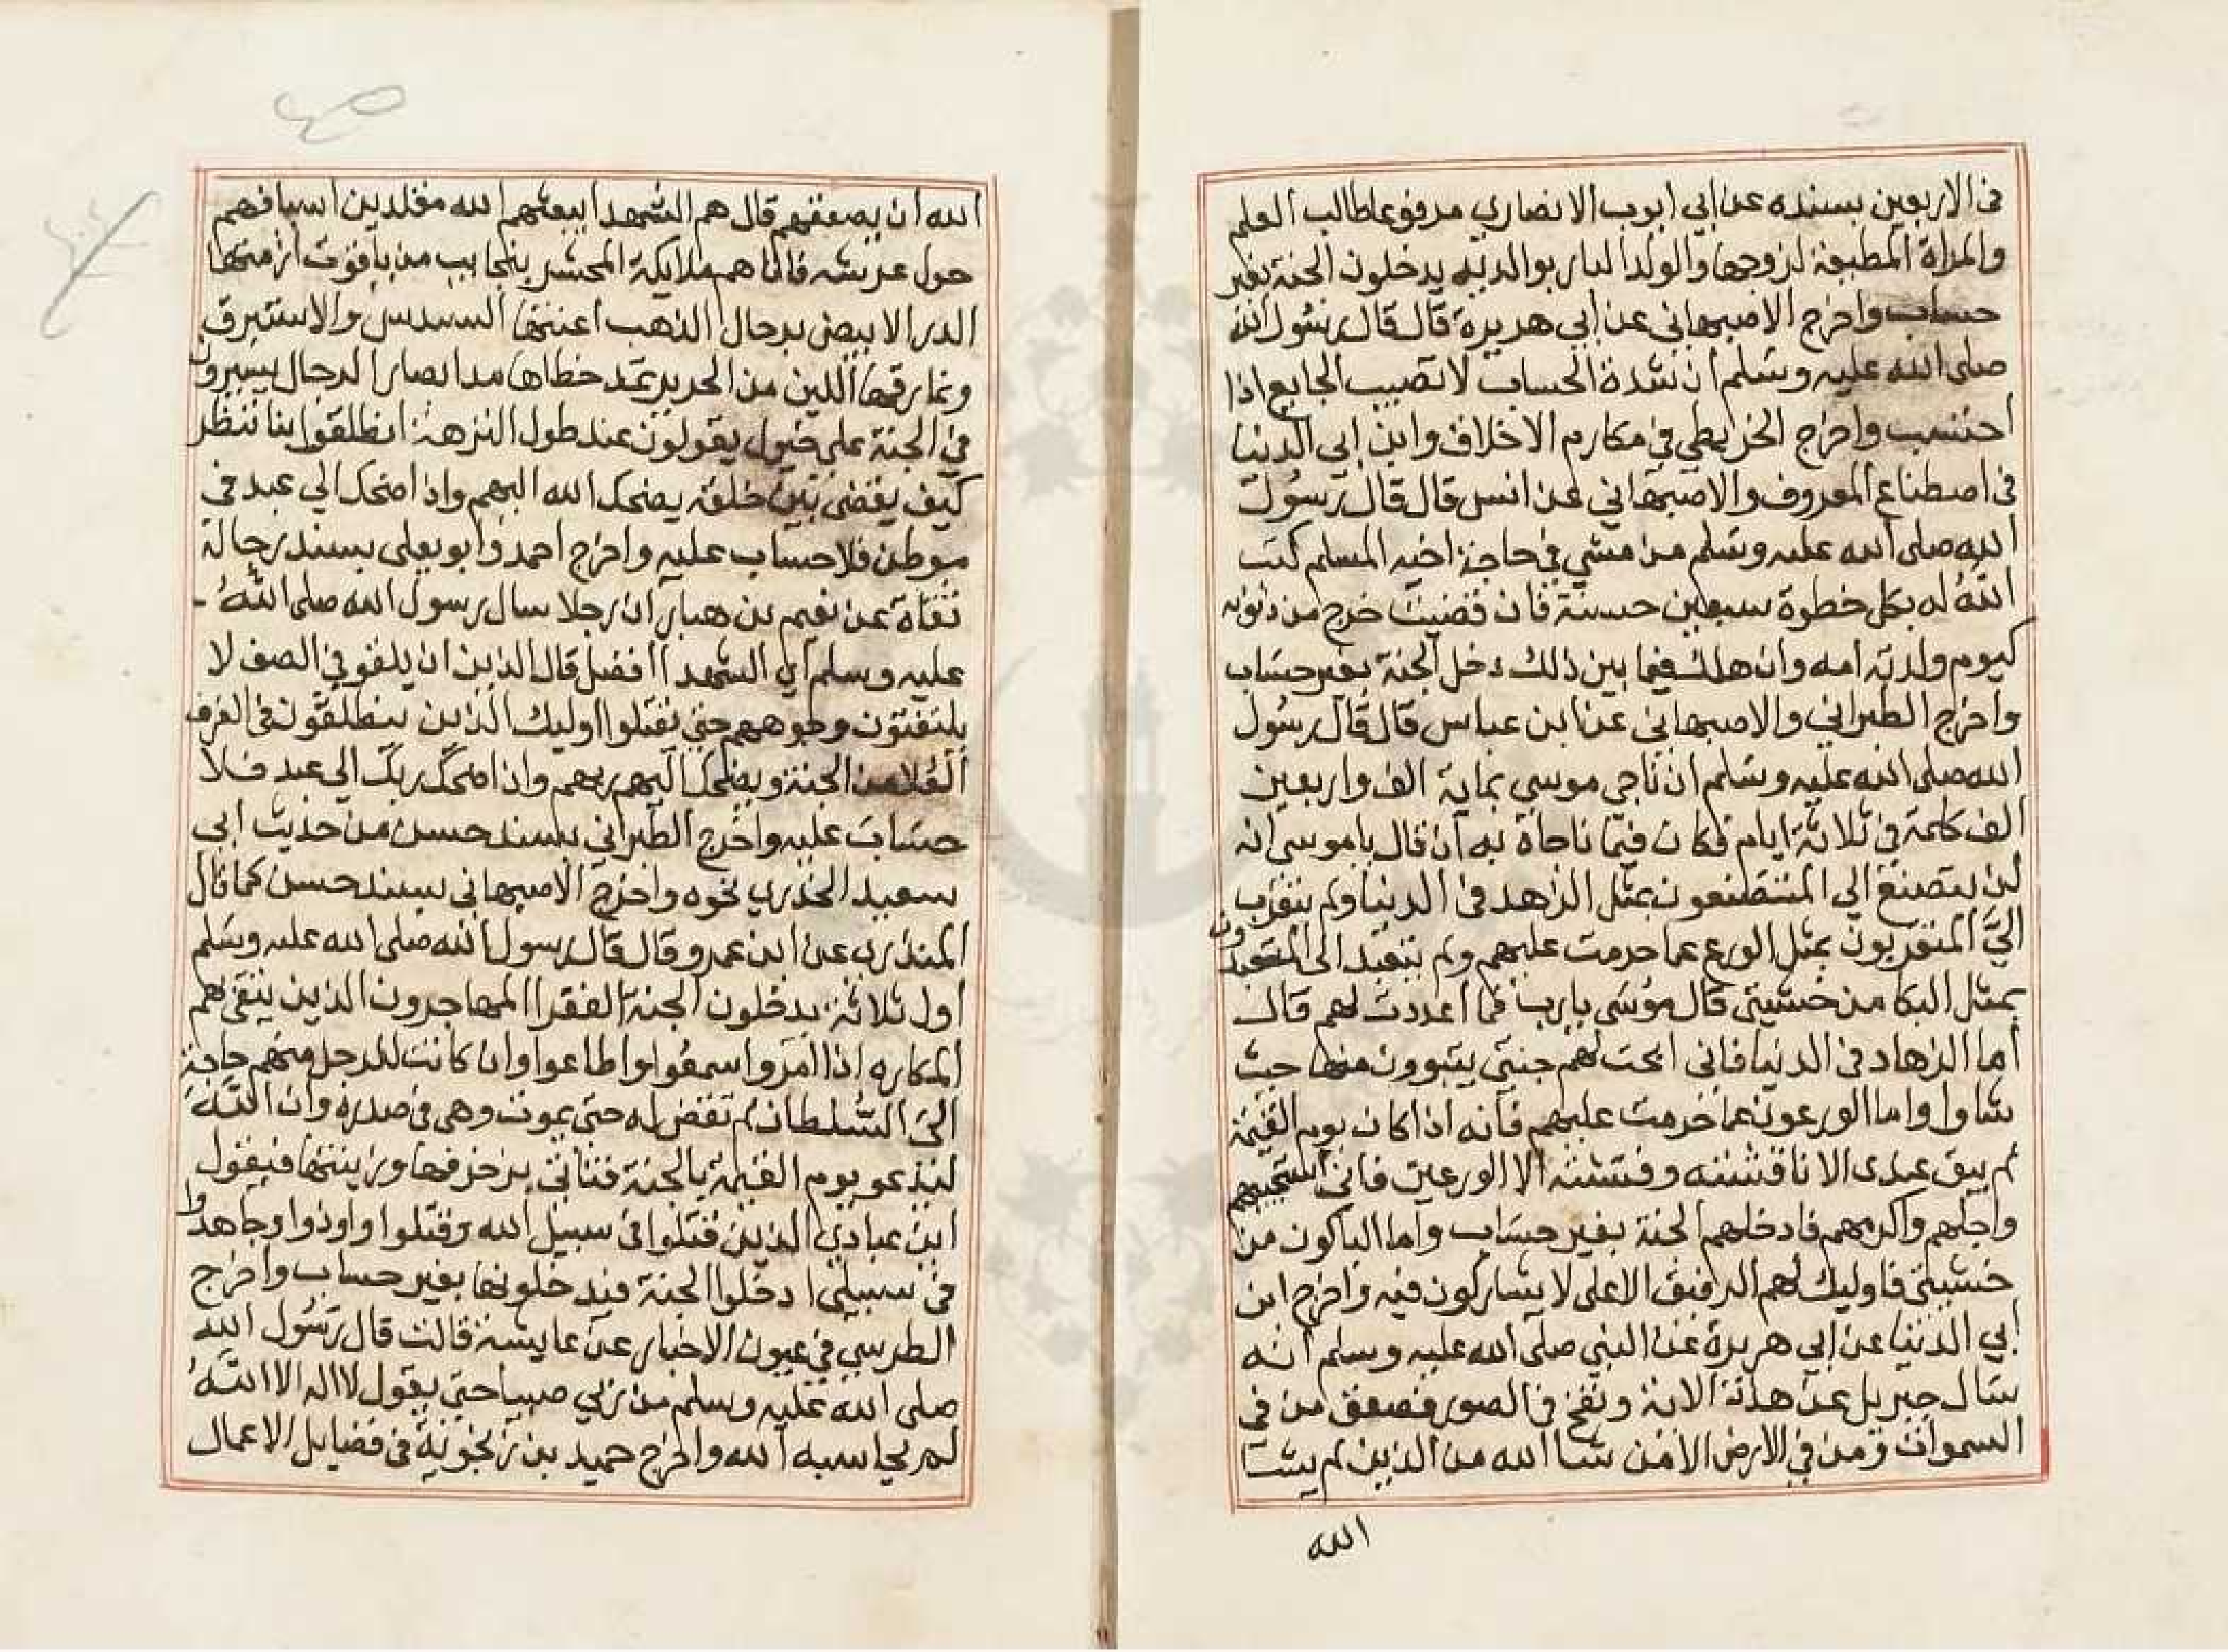 في الاربعين بسنده عن ابي ايوب الانصاري مرفوعا طالب العلم
والمراة المطيعة لزوجها والولد البار بوالديه يدخلون الجنة بغير
حساب واخرج الاصبهاني عن ابي هريرة قال قال رسول الله
صلى الله عليه وسلم ان شدة الحساب لا تصيب الجايع اذا
احتسب واخرج الخرايطي في مكارم الاخلاق وابن ابي الدنيا
في اصطناع المعروف والاصبهاني عن انس قال قال رسول
الله صلى الله عليه وسلم من مشي في حاجة اخيه المسلم كتب
الله له بكل خطوة سبعين حسنة فان قضيت خرج من ذنوبه
كيوم ولدته امه وان هلك فيما بين ذلك دخل الجنة بغير حساب
واخرج الطبراني والاصبهاني عن ابن عباس قال قال رسول
الله صلى الله عليه وسلم ان ناجي موسي بماية الف واربعين
الف كلمة في ثلاثة ايام فكان فيما ناجاة به ان قال يا موسى انه
لن يتصنع الي المتصنعون بمثل الزاهد في الدنيا ولم يتقرب
الي المتقربون بمثل الورع عما حرمت عليهم ولم يتعبد الى المتعبدون
بمثل البكا من خشيتي قال موسى يا رب فما اعددت لهم قال
اما الزهاد في الدنيا فاني ابحت لهم جنتي يتبوون منها حيث
شاوا واما الورعون عما حرمت عليهم فانه اذا كان يوم القيمة
لم يبق عبدى الا ناقشته وفتشته الا الورعين فاني استحييهم
واجلهم واكرمهم فادخلهم الجنة بغير حساب واما الباكون من
خشيتي فاوليك لهم الرفيق الاعلى لا يشاركون فيه واخرج ابن
ابي الدنيا عن ابي هريرة عن النبي صلى الله عليه وسلم انه
سال جبريل عن هذه الاية ونفخ في الصور فصعق من في
السموات ومن في الارض الا من شا الله من الذين لم يشا
الله
الله ان يصعقهم قال هم الشهدا يبعثهم الله مقلدين اسيافهم
حول عرشه فاتاهم ملايكة المحشر بنجايب من ياقوت ازمتها
الدر الابيض برحال الذهب اعنتها السندس والاستبرق
ونمارقها اللين من الحرير تمد خطاها مد ابصار الرجال يسيرون
في الجنة على خيول يقولون عند طول النزهة انطلقوا بنا ننظر
كيف يقضى بين خلقه يضحك الله اليهم واذا ضحك الي عبد في
موطن فلا حساب عليه واخرج احمد وابو يعلى بسند رجاله
ثقاة عن نعيم بن هبار ان رجلا سال رسول الله صلى الله
عليه وسلم اي الشهدا افضل قال الذين ان يلقو في الصف لا
يلتفتون وجوههم حتي يقتلوا اوليك الذين ينطلقون في الغرف
العلا من الجنة ويضحك اليهم ربهم واذا ضحك ربك الي عبد فلا
حساب عليه واخرج الطبراني بسند حسن من حديث ابي
سعيد الخذري نحوه واخرج الاصبهاني بسند حسن كما قال
المنذري عن ابن عمرو قال قال رسول الله صلى الله عليه وسلم
اول ثلاثة يدخلون الجنة الفقرا المهاجرون الذين يتقى بهم
المكاره اذا امروا سمعوا واطاعوا وان كانت للرجل منهم حاجة
الى السلطان لم تقض له حتى يموت وهي في صدره وان الله
ليدعو يوم القيمة بالجنة فتاتي بزخرفها وزينتها فيقول
اين عبادي الذين قتلوا في سبيل الله وقتلوا واوذوا وجاهدوا
في سبيلي ادخلوا الجنة فيدخلونها بغير حساب واخرج
الطرسي في عيون الاخبار عن عايشة قالت قال رسول الله
صلى الله عليه وسلم من ربي صبيا حتي يقول لا اله الا الله
لم يحاسبه الله واخرج حميد بن زنجوية في فضايل الاعمال